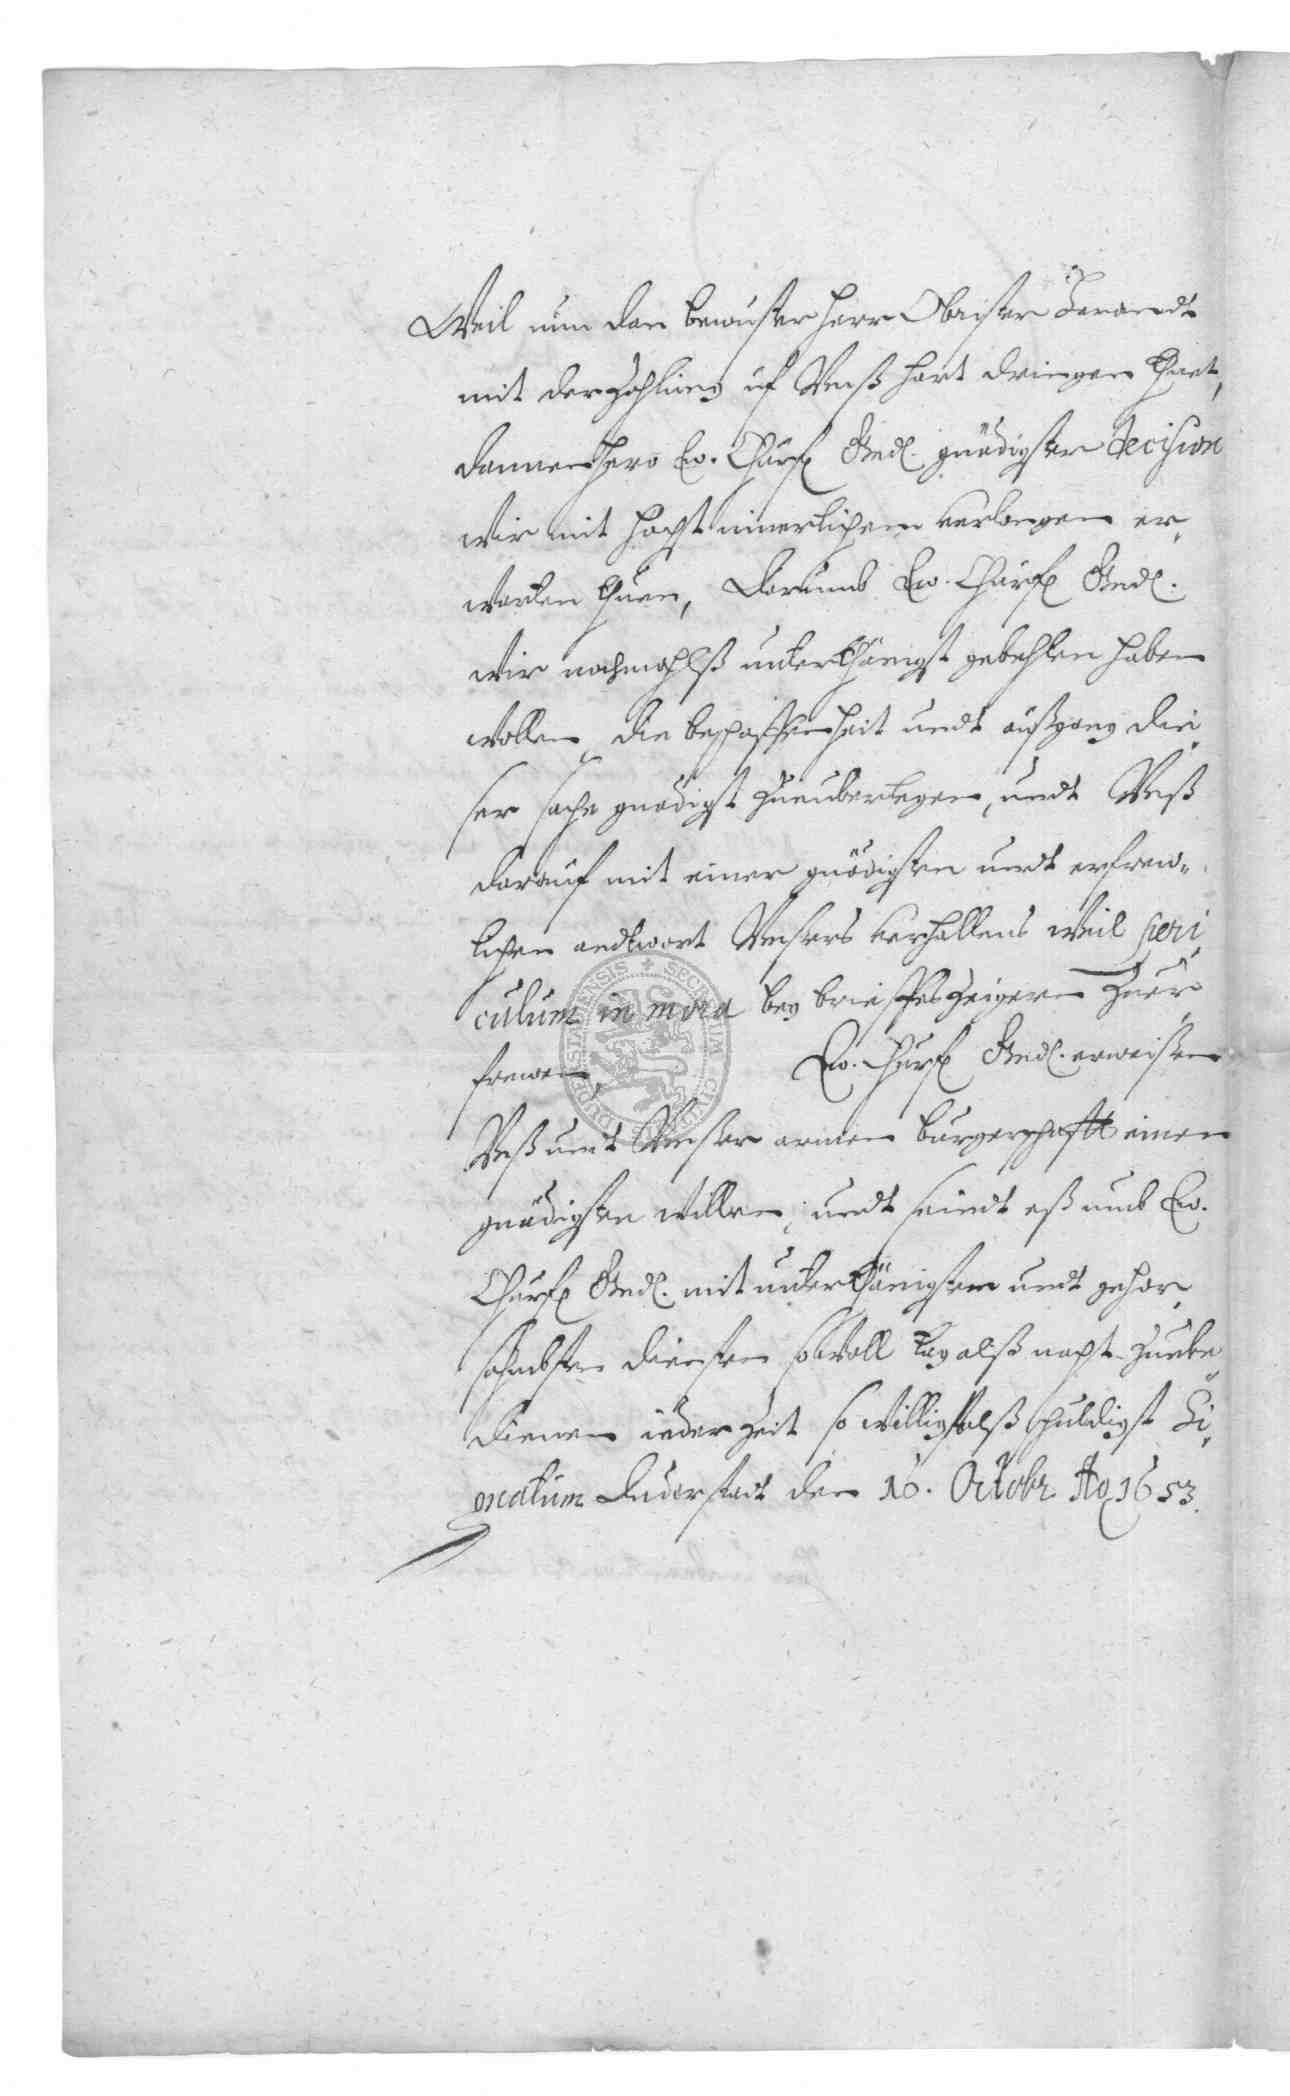 Weil nun den bewuster Herr Obrister Berandt
mit der Zahlung uf Vnß hart dringen thuet,
dannenhero Ew. Churf. Gnd. gnädigster decision
wir mit höchst innerlichem verlangen er„
warten thuen, Darumb Ew. Churf. Gnd.
wir nochmahlß unterthänigst gebehten haben
wollen, die beschaffenheit undt außgang die„
ser sache gnädigst zu uberlegen, undt Vnß
darauf mit einer gnädigsten undt erfrew„
lichen andtwort Vnsers verhaltens weil peri„
culum in mora bey brieffes Zeigern Zuer„
frewen, Ew. Churf. Gnd. erweisen
Vnß undt Vnser armen burgerschafft einen
gnädigsten willen, undt seindt eß umb Ew.
Churf. Gnd. mit unterthänigsten undt gehor„
sahmbsten diensten sowoll tag alß nacht Zuebe„
dienen ieder Zeit so willigst alß schuldigst Si„
gnatum Duderstadt den 16. Octobr Ao 1653.
SECRETUM CIVITATIS DUDERSTADENSIS